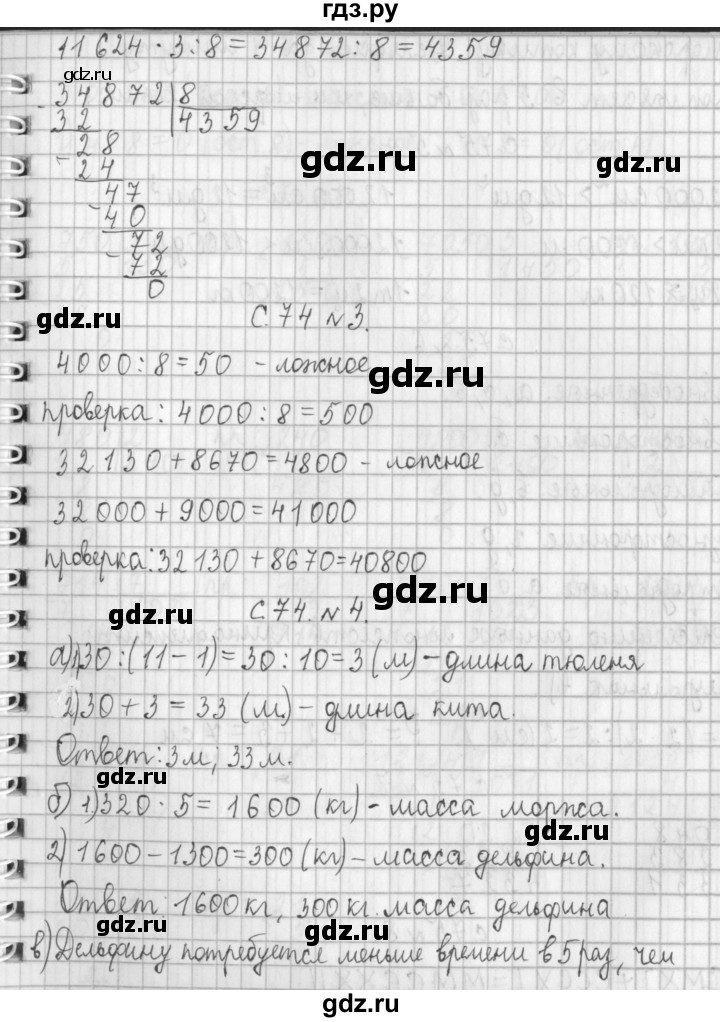 гдз.ру
11 624 · 3 : 8 = 34 872 : 8 = 4359
gdz.ru
34 872 | 8
32 4359
28
24
gdz.ru
47
40
72
72
0
gdz.ru
С. 74 №3.
4000 : 8 = 50 - ложное
gdz.ru
проверка: 4000 : 8 = 500
32 130 + 8670 = 4800 - ложное
32 000 + 9000 = 41 000
gdz.ru
проверка: 32 130 + 8670 = 40800
gdz.ru
С. 74. №4.
gdz.ru
а) 1) 30 : (11 - 1) = 30 : 10 = 3 (м) - длина тюленя
2) 30 + 3 = 33 (м) - длина кита.
gdz.ru
Ответ: 3 м; 33 м.
gdz.ru
б) 1) 320 · 5 = 1600 (кг) - масса моржа.
gdz.ru
2) 1600 - 1300 = 300 (кг) - масса дельфина.
Ответ 1600 кг, 300 кг масса дельфина
gdz.ru
gdz.ru
в) Дельфину потребуется меньше времени в 5 раз, чем
gdz.ru